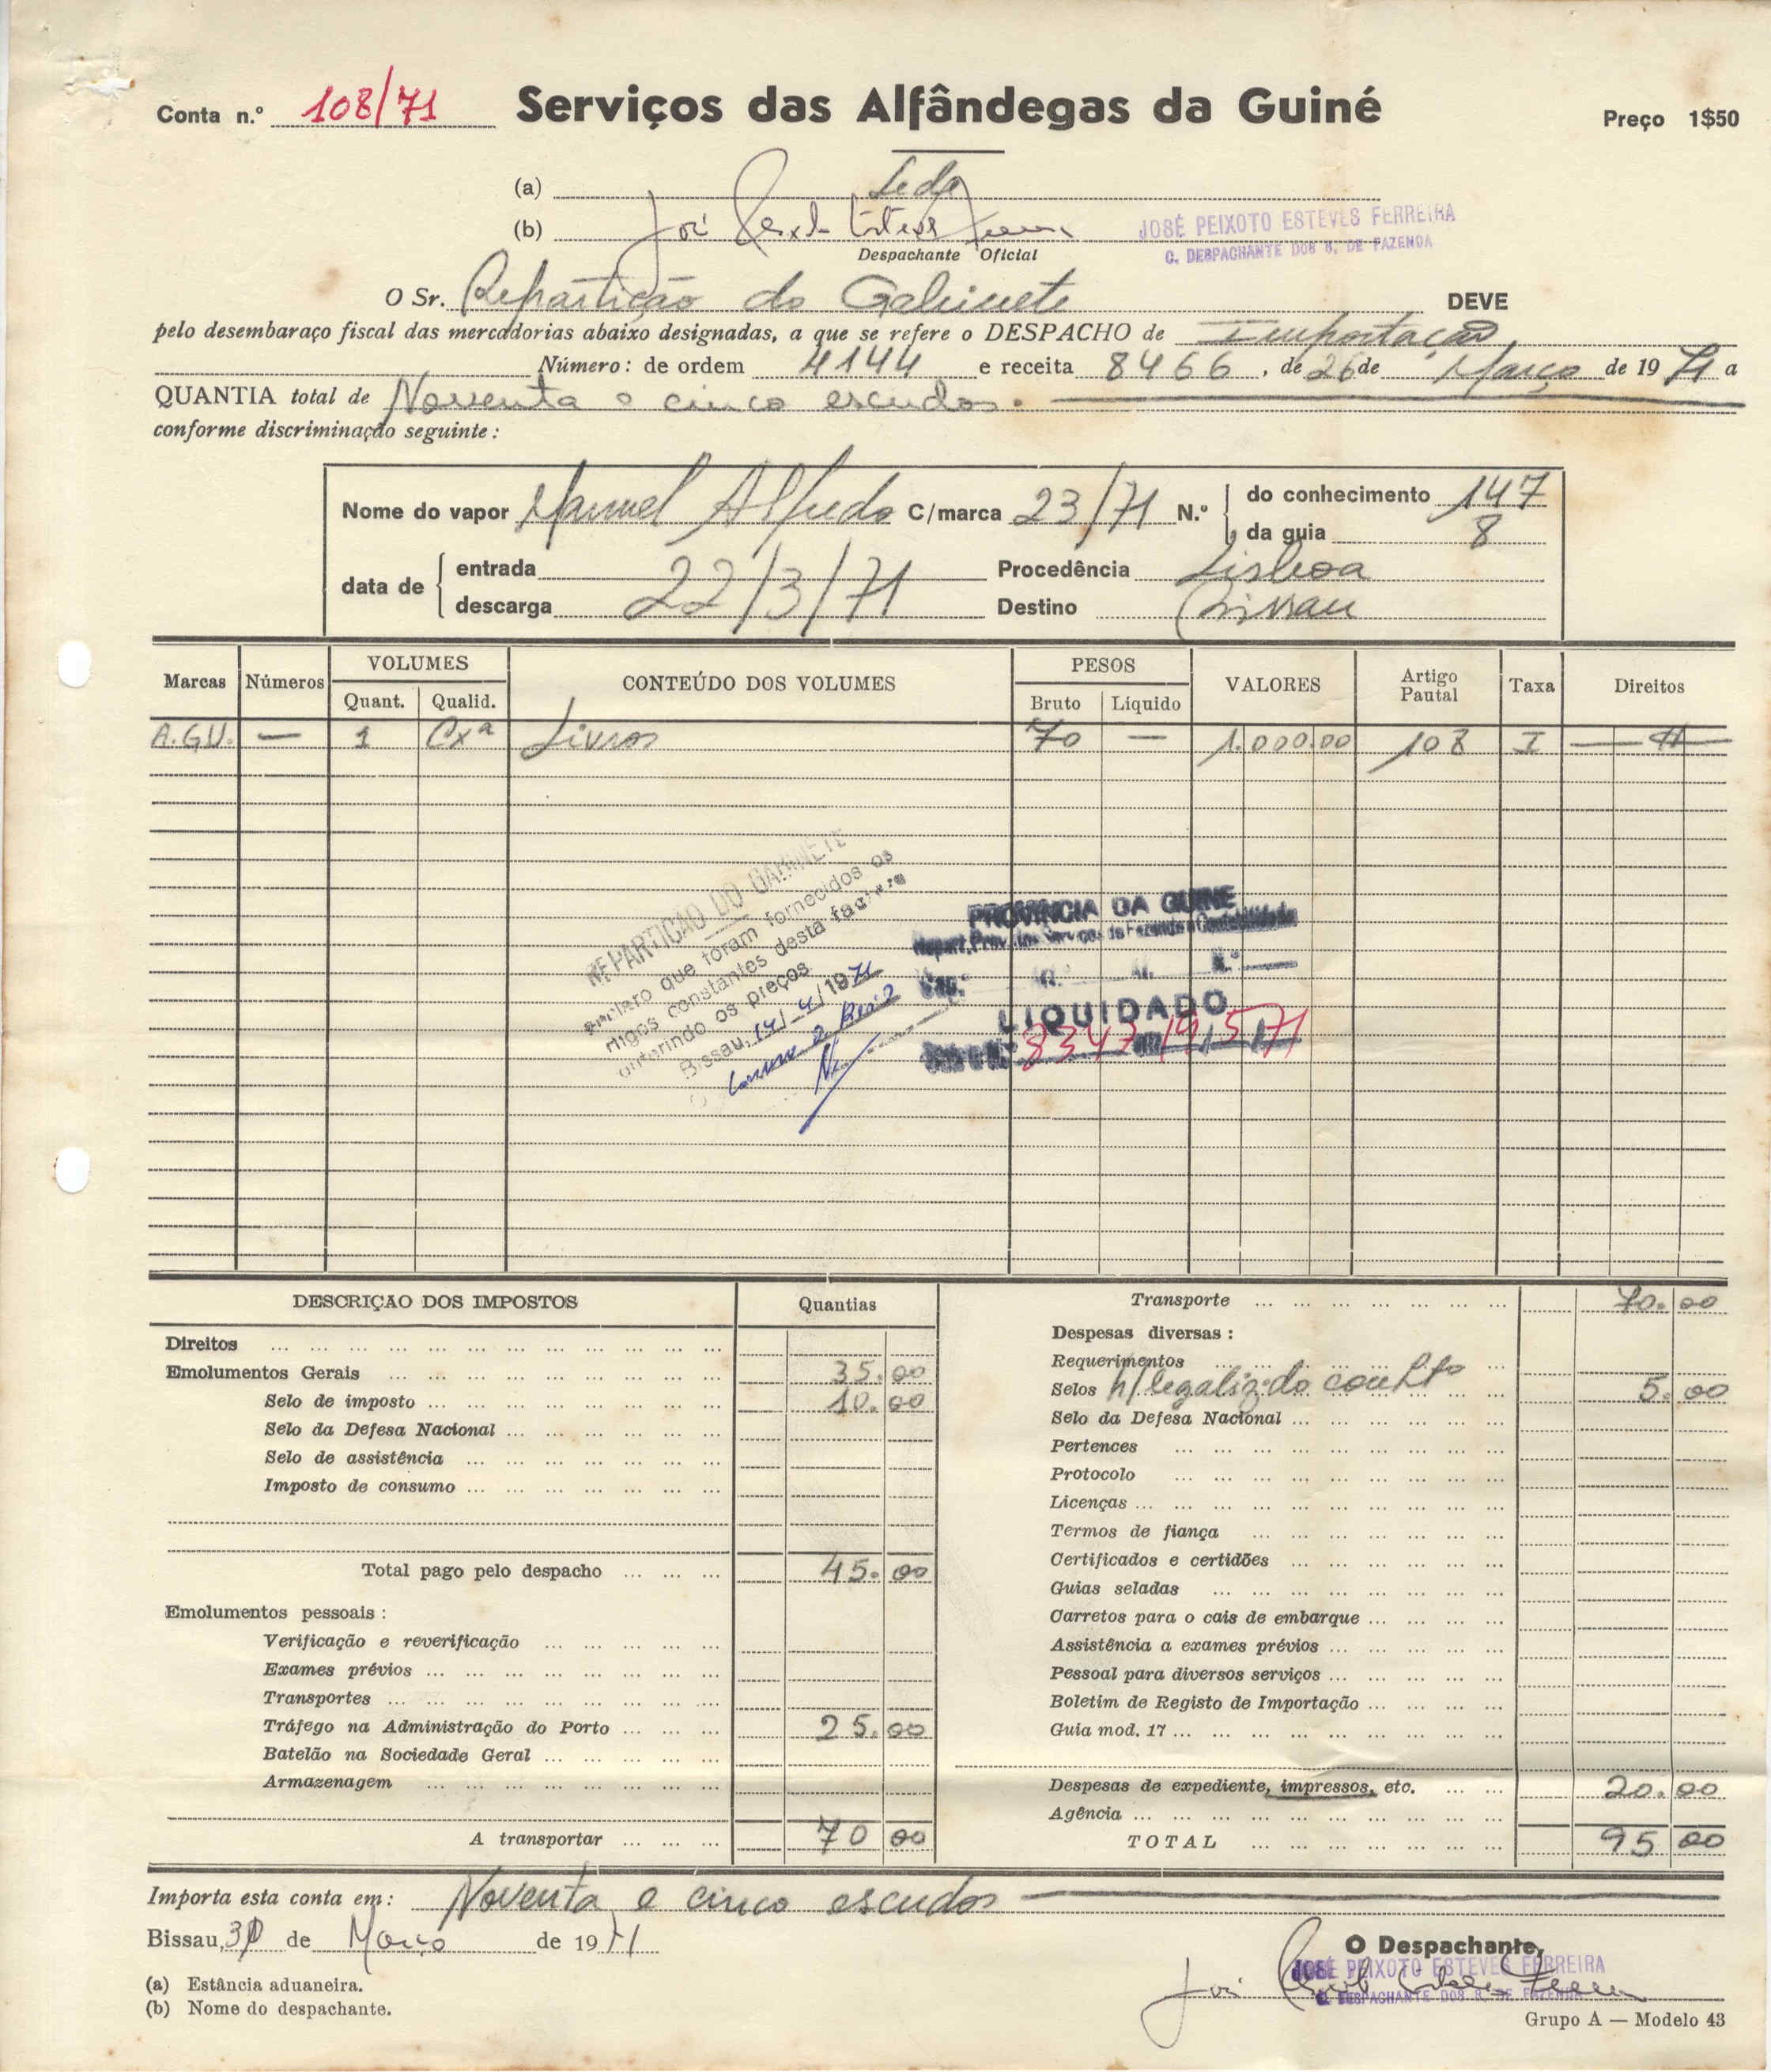 Conta n.º 108/71 Serviços das Alfândegas da Guiné Preço 1$50
(a) Sede
(b) José Peixoto Esteves Ferreira JOSÉ PEIXOTO ESTEVES FERREIRA
C. DESPACHANTE DOS S. DE FAZENDA
Despachante Oficial
O Sr. Repartição do Gabinete DEVE
pelo desembaraço fiscal das mercadorias abaixo designadas, a que se refere o DESPACHO de Importação
Número: de ordem 4144 e receita 8466, de 26 de Março de 1971 a
QUANTIA total de Noventa e cinco escudos.
conforme discriminação seguinte:
Nome do vapor Manuel Alfredo C/marca 23/71 N.º do conhecimento 147
da guia 8
data de entrada Procedência Lisboa
descarga 22/3/71 Destino Bissau
Marcas Números VOLUMES CONTEÚDO DOS VOLUMES PESOS VALORES Artigo Pautal Taxa Direitos
Quant. Qualid. Bruto Líquido
A.G.U. — 1 Cxª Livros 70 — 1.000.00 108 I
REPARTIÇÃO DO GABINETE
que foram fornecidos os
constantes desta factura
os preços
Bissau, 14/4/1971
PROVINCIA DA GUINE
Repart. Prov. dos Serviços de Fazenda e Contabilidade
LIQUIDADO
8347 19/5/71
DESCRIÇÃO DOS IMPOSTOS Quantias
Direitos
Emolumentos Gerais 35.00
Selo de imposto 10.00
Selo da Defesa Nacional
Selo de assistência
Imposto de consumo
Total pago pelo despacho 45.00
Emolumentos pessoais:
Verificação e reverificação
Exames prévios
Transportes
Tráfego na Administração do Porto 25.00
Batelão na Sociedade Geral
Armazenagem
A transportar 70 00
Transporte 70.00
Despesas diversas:
Requerimentos
Selos p/legaliz. do conhtº 5.00
Selo da Defesa Nacional
Pertences
Protocolo
Licenças
Termos de fiança
Certificados e certidões
Guias seladas
Carretos para o cais de embarque
Assistência a exames prévios
Pessoal para diversos serviços
Boletim de Registo de Importação
Guia mod. 17
Despesas de expediente, impressos, etc. 20.00
Agência
TOTAL 95 00
Importa esta conta em: Noventa e cinco escudos
Bissau, de Março de 1971
O Despachante,
JOSÉ PEIXOTO ESTEVES FERREIRA
C. DESPACHANTE DOS S. DE FAZENDA
José Peixoto Esteves Ferreira
(a) Estância aduaneira.
(b) Nome do despachante.
Grupo A — Modelo 43